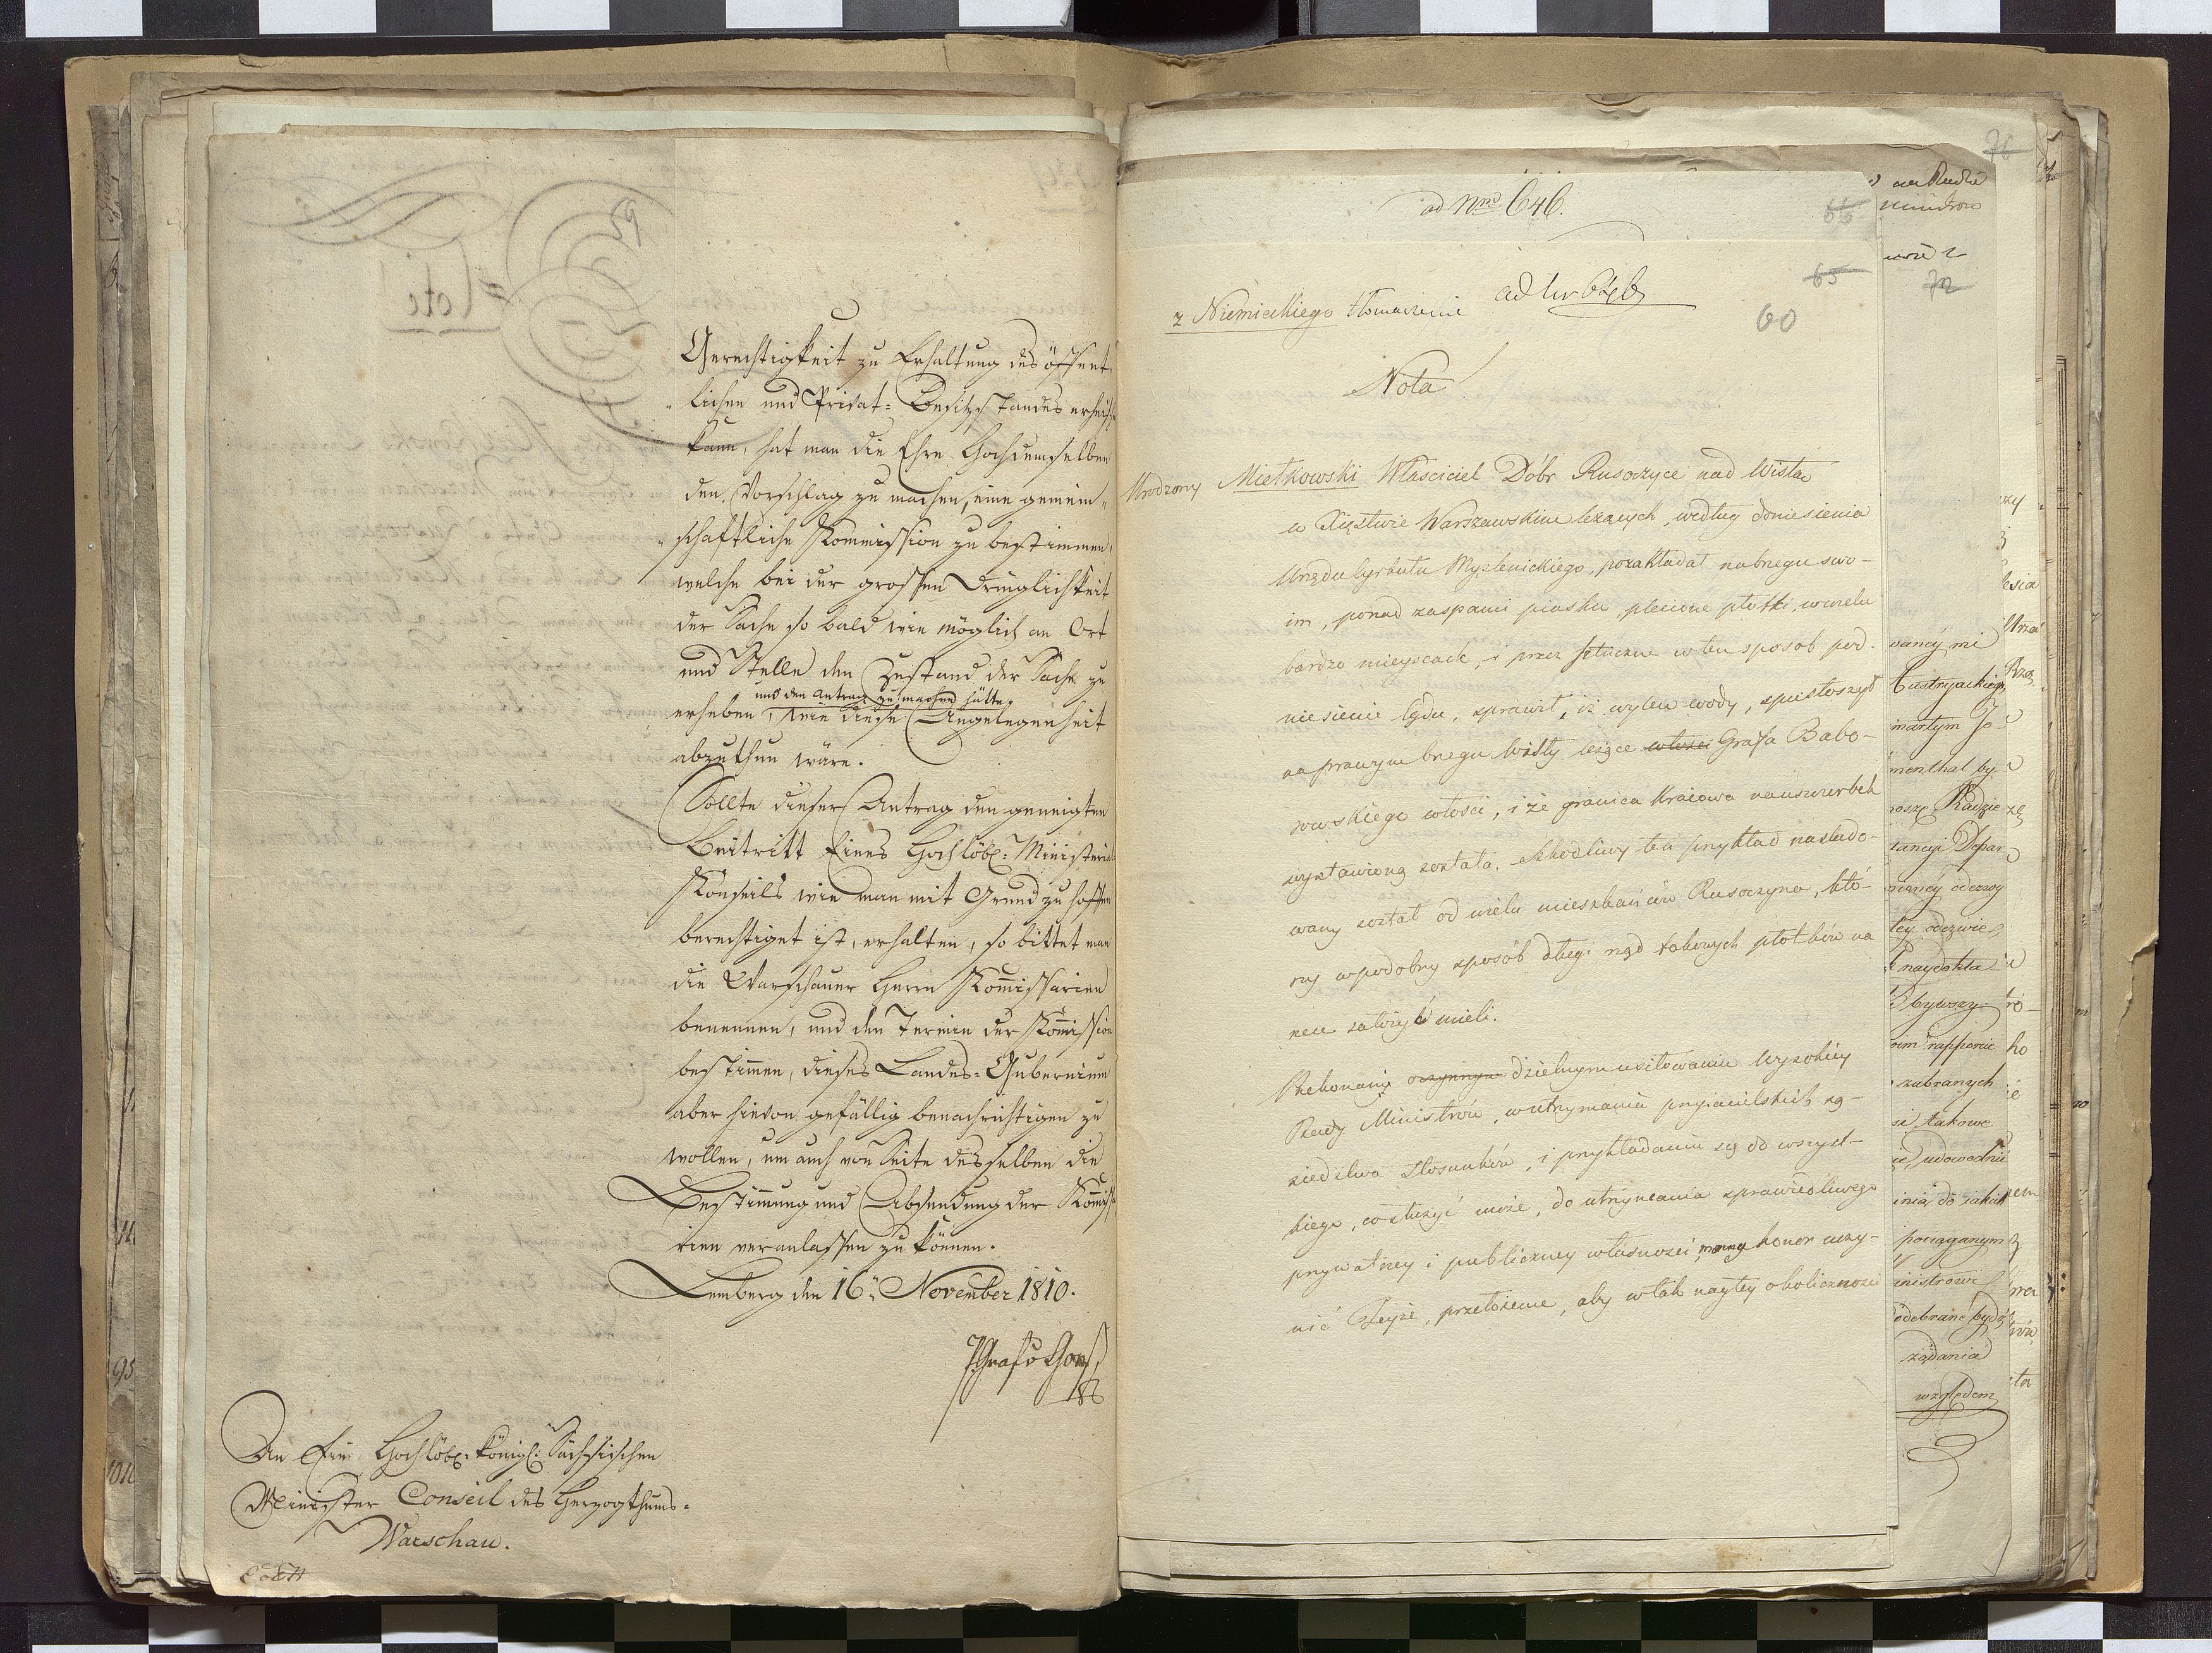 Gerechtigkeit zu Erhaltung des öffent-
lichen und Privat-Besitzstandes erheischen
kann, hat man die Ehre Hochdemselben
den Vorschlag zu machen, eine gemein-
schaftliche Kommission zu bestimmen,
welche bei der grossen Dringlichkeit
der Sache so bald wie möglich an Ort
und Stelle den Zustand der Sache zu
und den Antrag zu machen hätte,
erheben, wie diese Angelegenheit
abzuthun wäre.
Sollte dieser Antrag den geneigten
Beitritt Eines Hochlöbl: Ministerial
Konseils wie man mit Grund zu hoffen
berechtiget ist, erhalten, so bittet man
die Warschauer Herrn Kom̄issarien
benennen, und den Termin der Kom̄ission
bestim̄en, dieses Landes-Gubernium
aber hievon gefällig benachrichtigen zu
wollen, um auch von Seite desselben die
Bestim̄ung und Absendung der Kom̄issa
rien veranlassen zu können.
Lemberg den 16n November 1810.
An Ein Hochlöbl: königl: Sächsischen
Minister Conseil des Herzogthums-
Warschau.
ad Nro 646.
66
ad Nr 646
65
60
z Niemieckiego tłomaczenie
Nota
Urodzony Mietkowski Własciciel Dóbr Rusoczyce nad Wisłą
w Xięstwie Warszawskim leżących, według doniesienia
Urzędu Cyrkułu Myslenickiego, pozakładał na brzegu swo-
im, ponad zaspami piasku, plecione płotki, w wielu
bardzo mieyscach, i przez sztuczne w ten sposób pod-
niesienie lądu, sprawił, iż wylew wody, spustoszył
na prawym brzegu Wisły leżące włości Grafa Babo-
rowskiego włości, i że granica Kraiowa na uszczerbek
wystawioną została. Szkodliwy ten przykład naslado-
wany został od wielu mieszkańców Rusoczyna, któ-
rzy w podobny sposób długi rząd takowych płotków na
rzece założyć mieli.
Przekonany dzielnym usiłowaniu Wysokiey
Rady Ministrów, w utrzymaniu przyiacielskich są-
siedztwa stosunków, i przykładaniu się do wszyst-
kiego, co służyć może, do utrzymania sprawiedliwego
prywatney i publiczney własności, mamy honor uczy-
nić Teyże, przełożenie, aby w tak nagłey okoliczności
76
72
na Radzie
waney mi
Austryackiego
martym Jo
menthal by
noszę Radzie
tancyi Depar
ley odezwie
naydokła
bywszy
nim rapporcie
zabranych
takowe
udowodnić
do iakich
pociąganym
inistrowi
odebrane być
żądania
względem